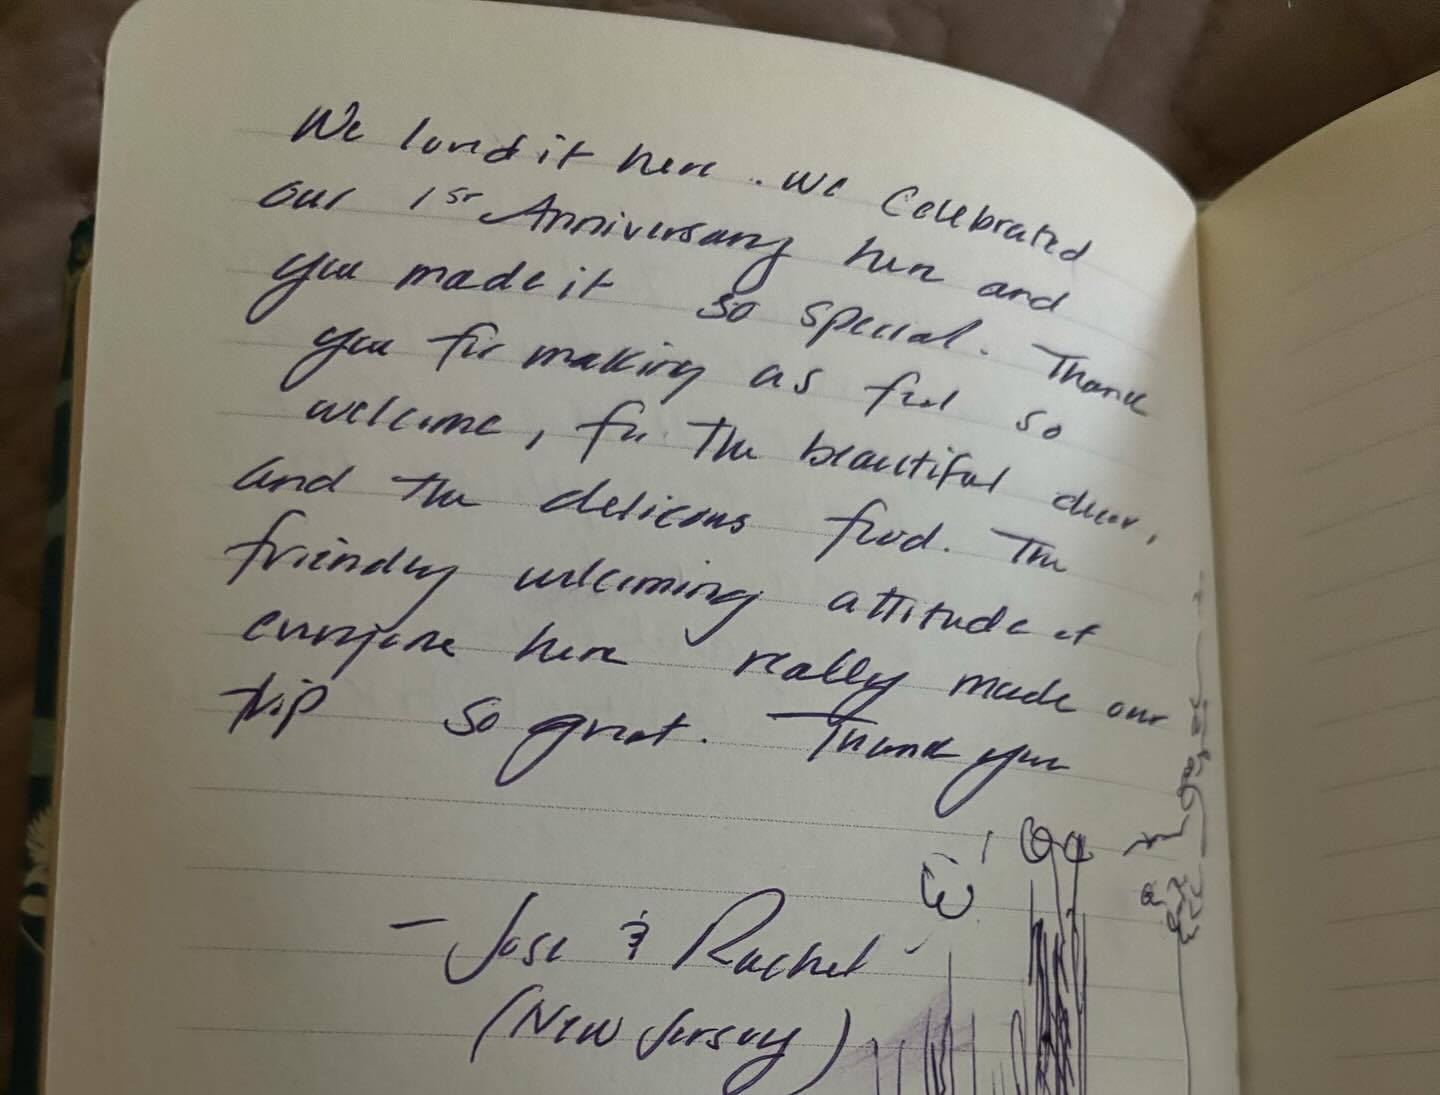 We loved it here. We Celebrated
our 1st Anniversary here and
you made it so special. Thank
you for making as feel so
welcome, for the beautiful decor,
and the delicous food. The
friendly welcoming attitude of
everyone here really made our
trip so great. Thank you
- Jose & Rachel
(New Jersey)